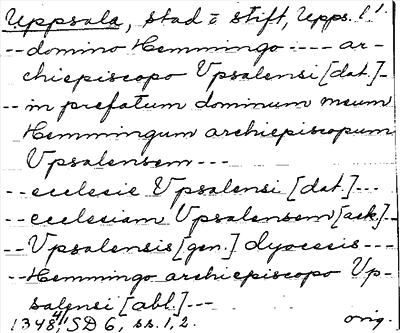 Uppsala, stad i stift, Upps. l. 1.
-- domino Hemmingo ---- ar-
chiepiscopo Vpsalensi [dat.]-
-- in prefatum dominum meum
Hemmingum archiepiscopum
Vpsalensem ---
-- ecclesie Vpsalensi [dat.]---
-- ecclesiam Vpsalensem [ack.]--
-- Vpsalensis [gen.] dyocesis ---
-- Hemmingo archiepiscopo Vp-
salensi [abl.]---
1348 4/1, SD 6, ss. 1, 2. orig.